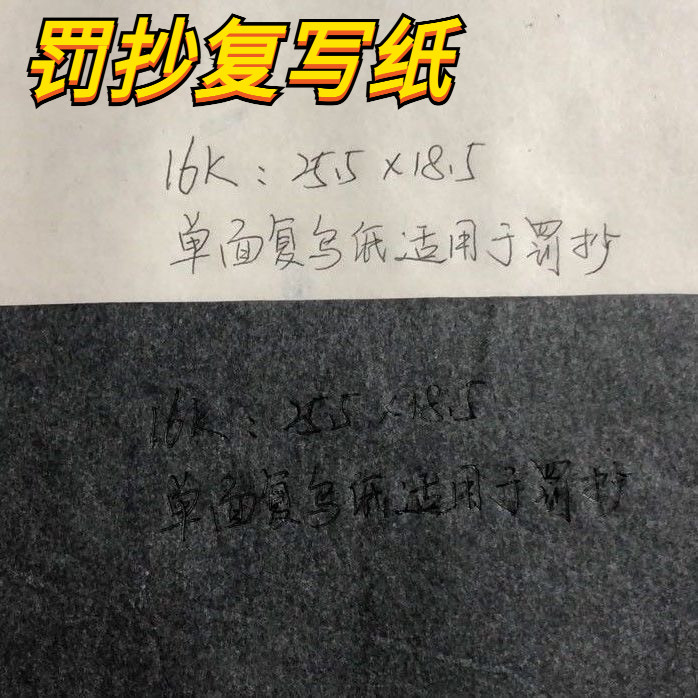 罚抄复写纸
16K：25.5×18.5
单面复写纸适用于罚抄
16K：25.5×18.5
单面复写纸适用于罚抄